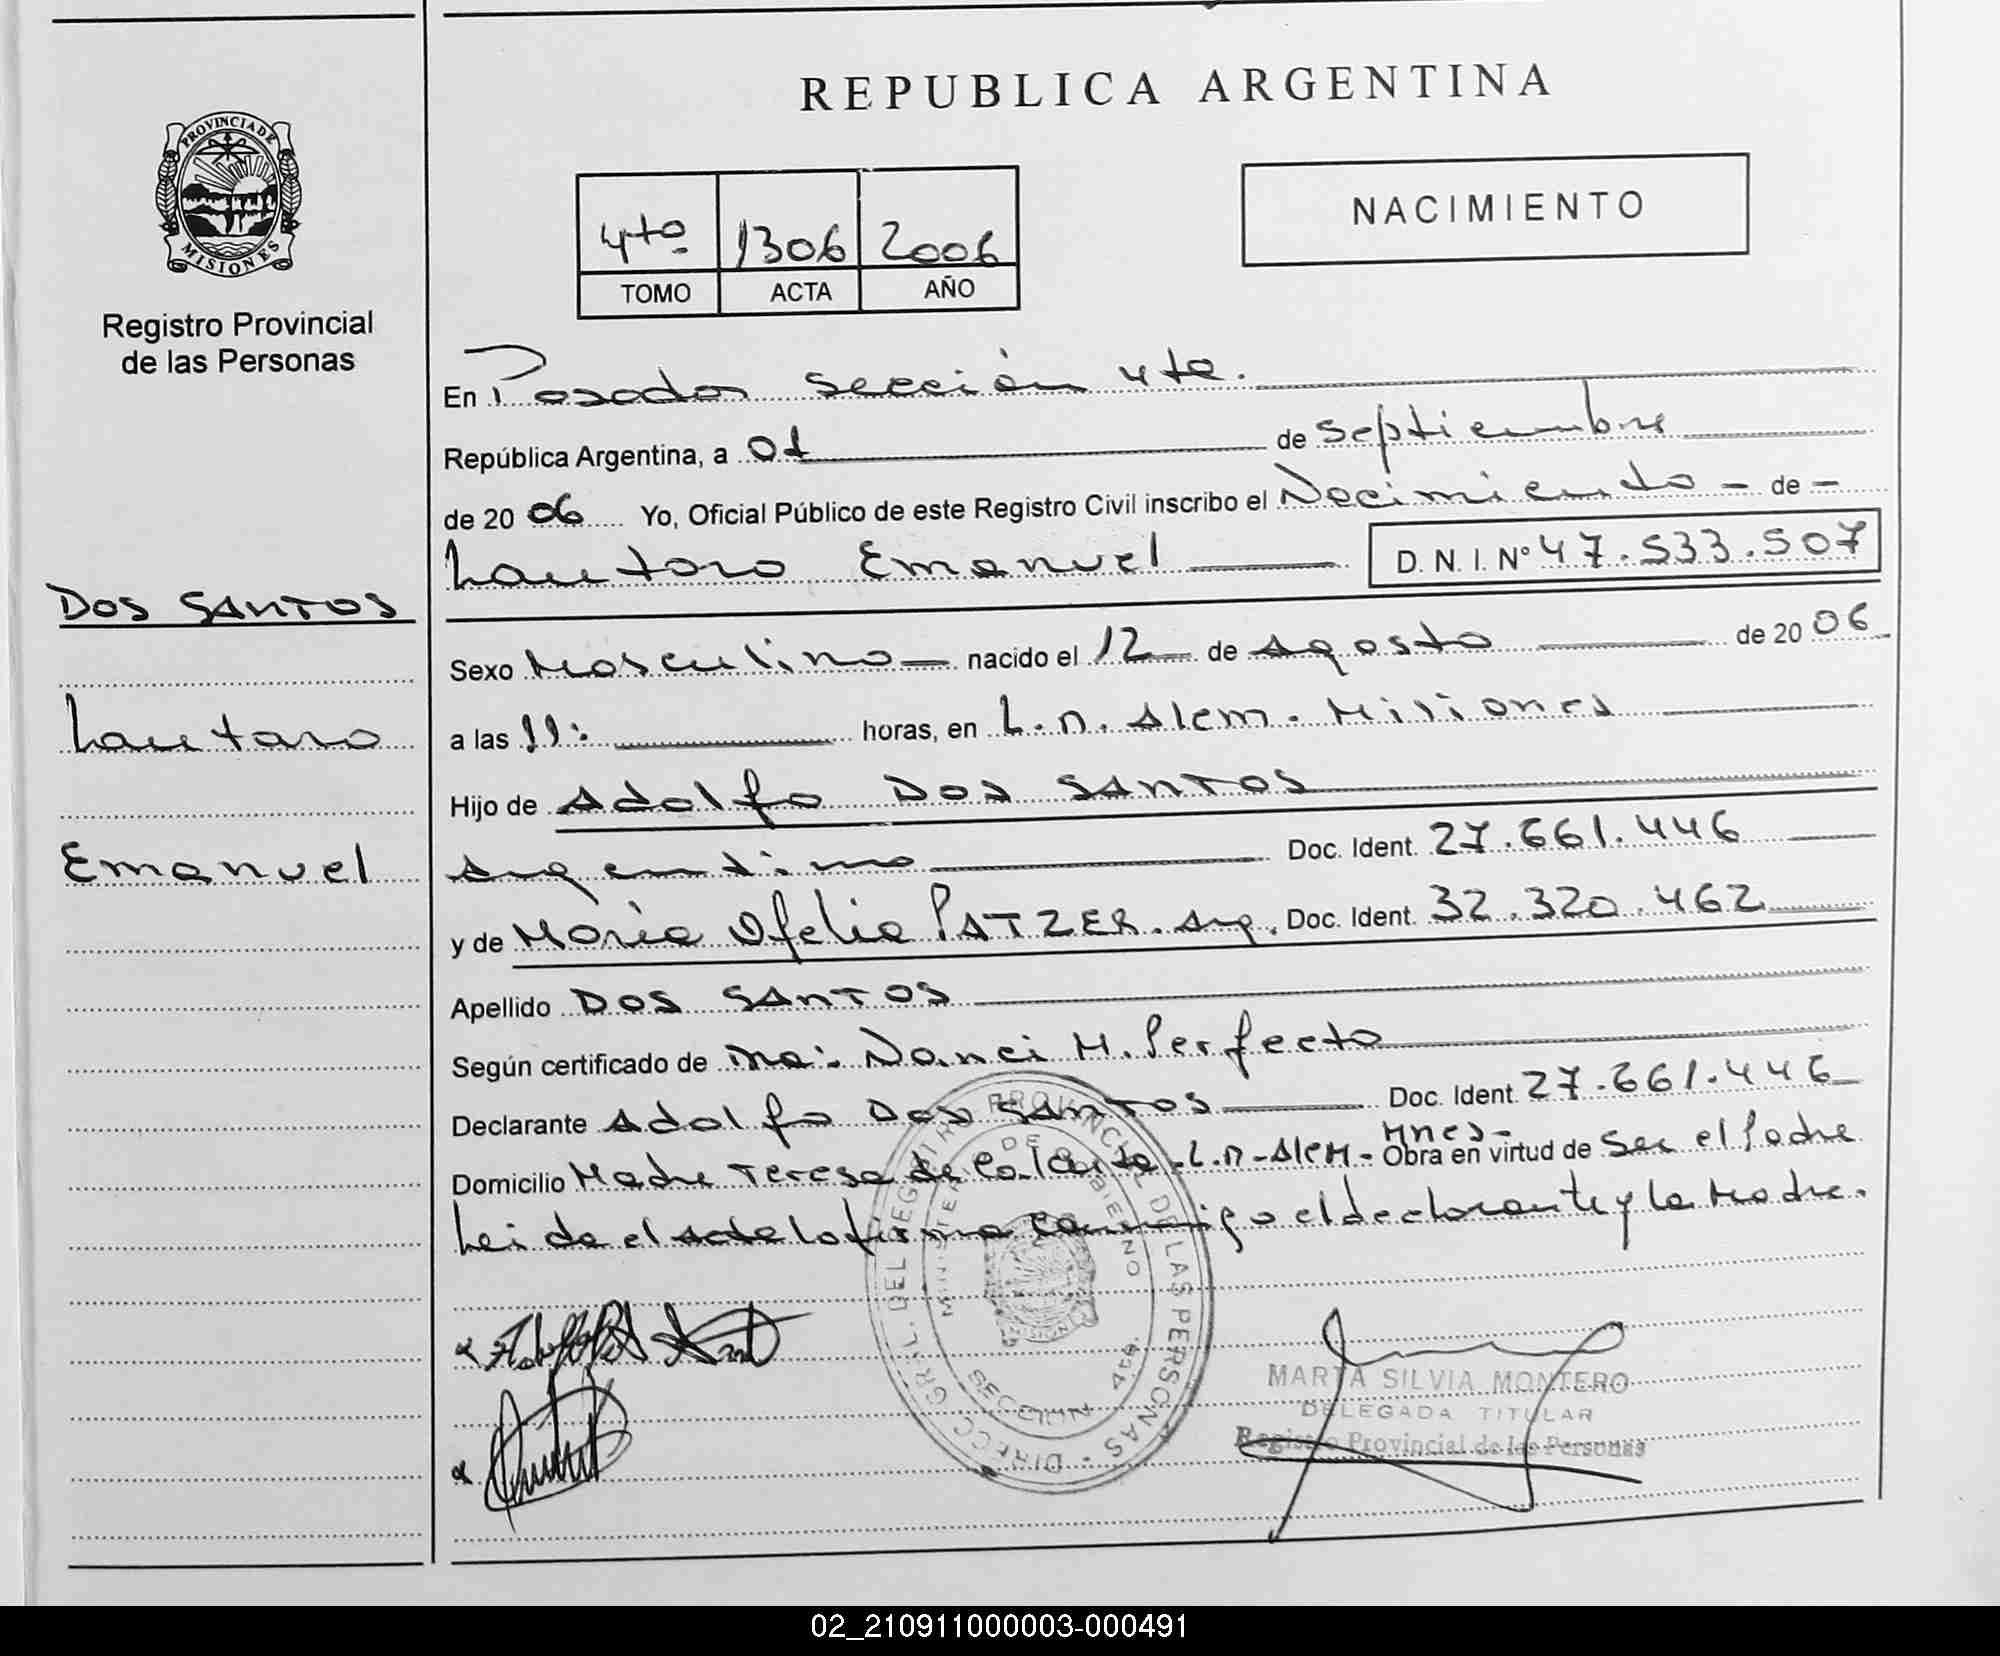 REPUBLICA ARGENTINA
PROVINCIA DE
MISIONES
Registro Provincial
de las Personas
4to 1306 2006
TOMO ACTA AÑO
NACIMIENTO
En Posadas sección 4ta.
República Argentina, a 01 de septiembre
de 2006 Yo, Oficial Público de este Registro Civil inscribo el Nacimiento - de -
Lautaro Emanuel D.N.I. Nº 47.533.507
DOS SANTOS
Lautaro
Emanuel
Sexo Masculino nacido el 12 de Agosto de 2006
a las 11: horas, en L.N. Alem. Misiones
Hijo de Adolfo DOS SANTOS
Argentino Doc. Ident. 27.661.446
y de María Ofelia PATZER. Arg. Doc. Ident. 32.320.462
Apellido DOS SANTOS
Según certificado de Nanci M. Perfecto
Declarante Adolfo DOS SANTOS Doc. Ident. 27.661.446
Domicilio Madre Teresa de Calcuta - L.N-Alem- Mnes- Obra en virtud de Ser el Padre
Leida el acta la firma conmigo el declarante y la Madre.
DIRECC. GRAL. DEL REGISTRO PROVINCIAL DE LAS PERSONAS
MINISTERIO DE GOBIERNO
SECCION 4ta.
MARTA SILVIA MONTERO
DELEGADA TITULAR
Registro Provincial de las Personas
02_210911000003-000491